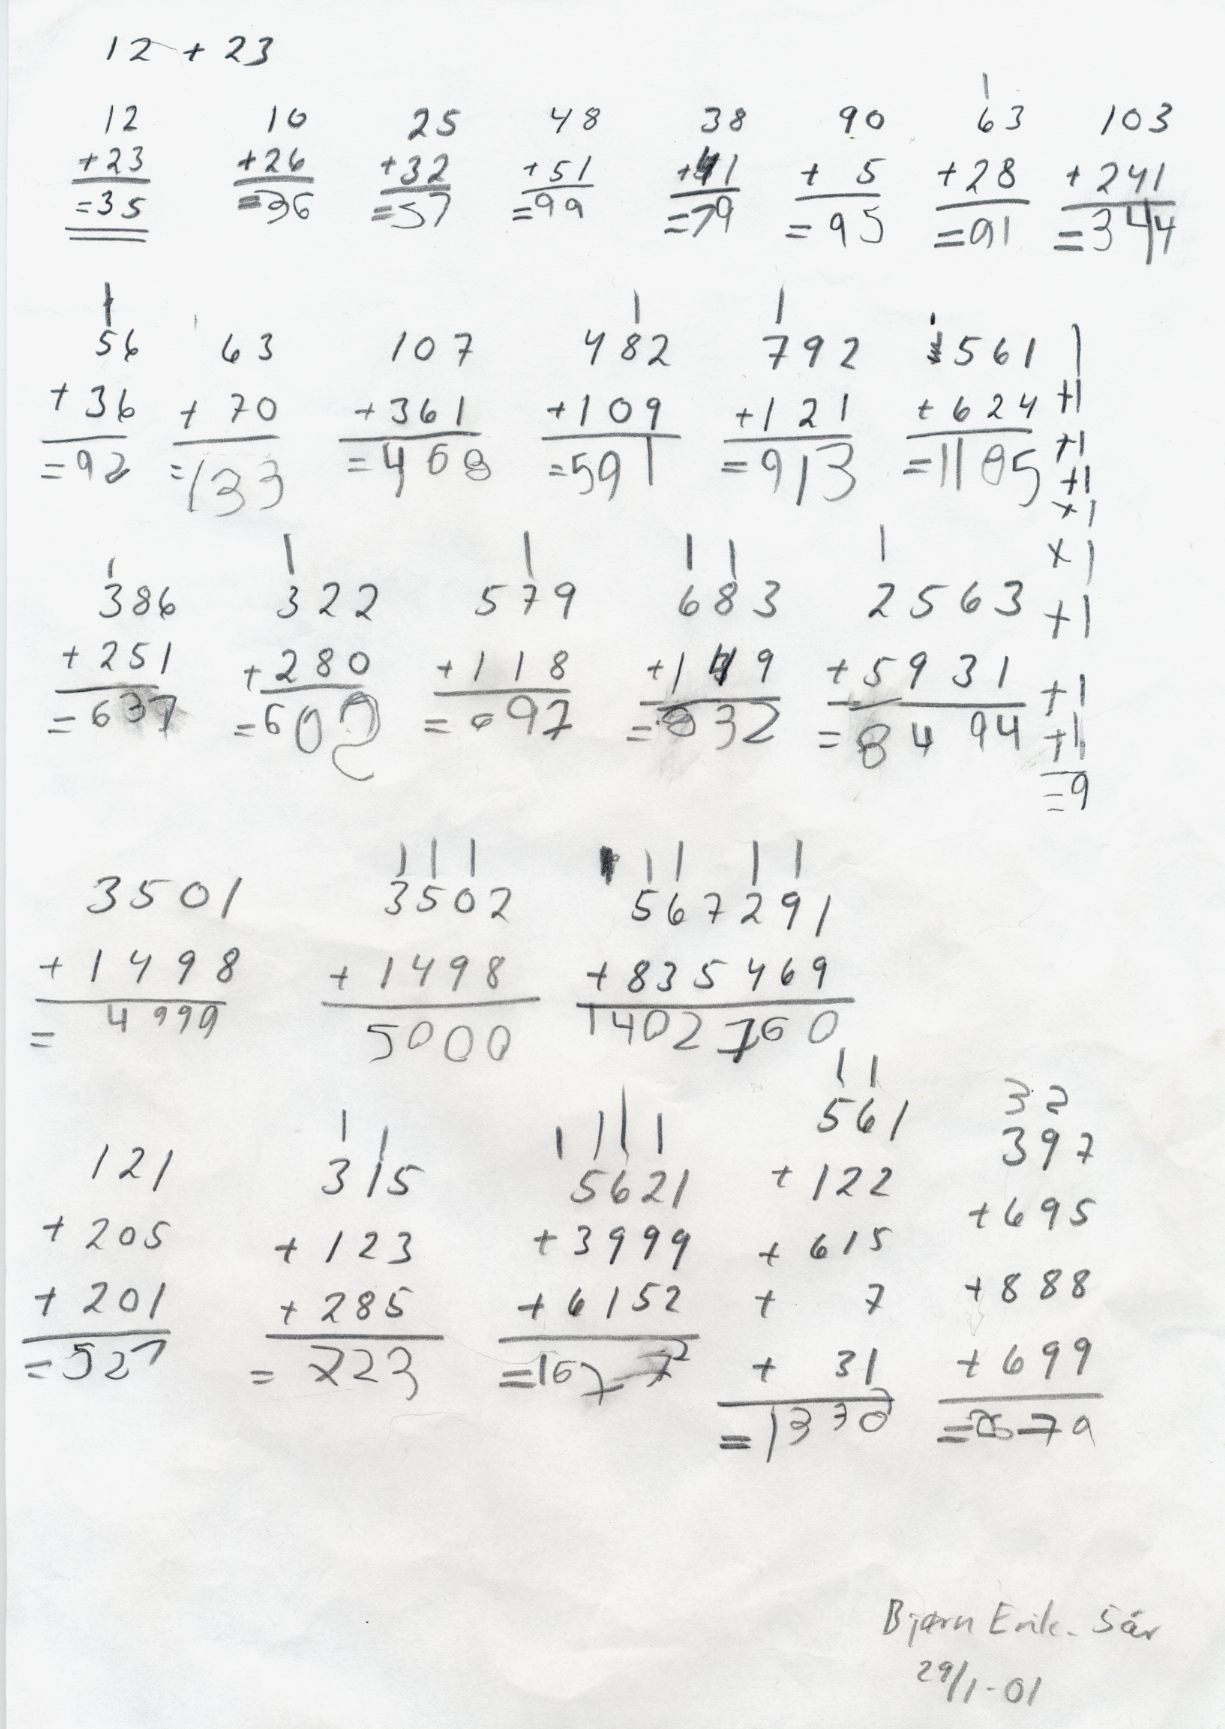 12 + 23
12 10 25 48 38 90 1 63 103
+23 +26 +32 +51 +41 + 5 +28 +241
=35 =36 =57 =99 =79 =95 =91 =344
1 1 1
56 63 107 482 792 561 1
+36 + 70 +361 +109 +121 +624 +1
=92 =133 =468 =591 =913 =1185 +1
+1
+1
1 1 1 1 1 1 +1
386 322 579 683 2563 +1
+251 +280 +118 +149 +5931 +1
=637 =602 =697 =832 =8494 +1
=9
1 1 1 1 1 1 1
3501 3502 567291
+1498 +1498 +835469
= 4999 5000 1402760
1 1 1 1 1 1 1 1 32
121 315 5621 561 397
+205 +123 +3999 +122 +695
+201 +285 +6152 +615 +888
=527 =723 + 7 +699
+ 31
Bjørn Erik. 5 år
29/1-01